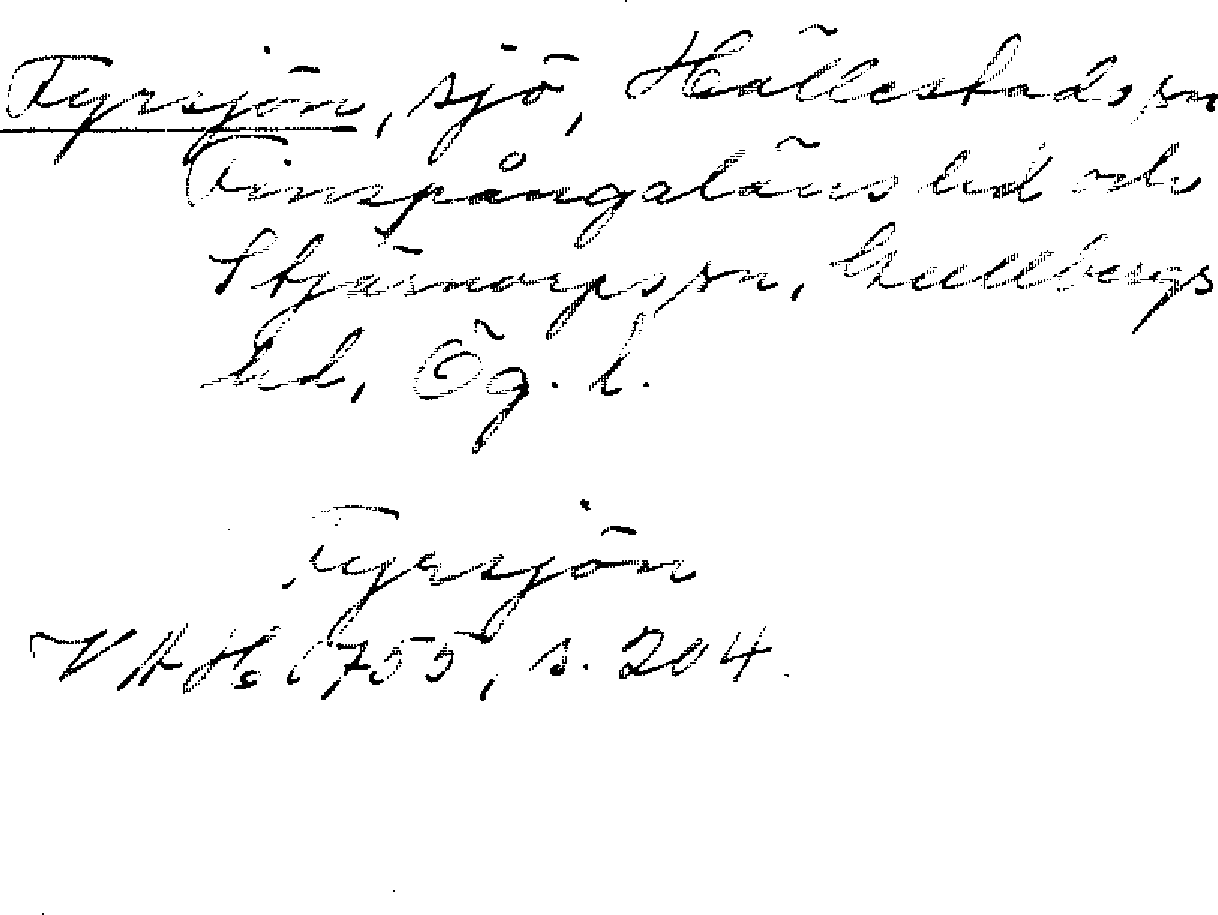 Tyrsjön, sjö, Hällestads sn
Finspångaläns hd och
Stjärnorps sn, Gullbergs
hd, Ög. l.
Tyrsjön
VAH 1755, s. 204.